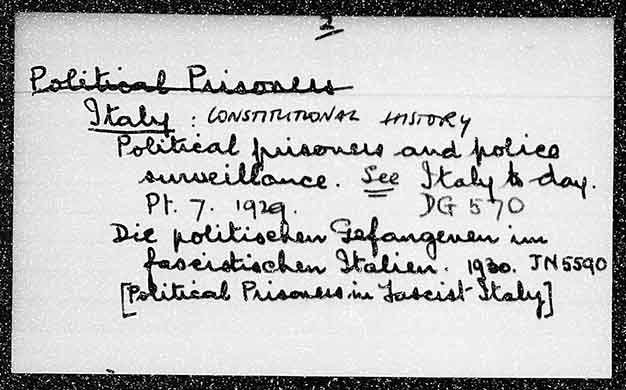 2
Political Prisoners
Italy : CONSTITUTIONAL HISTORY
Political prisoners and police
surveillance. See Italy to-day.
Pt. 7. 1929. DG 570
Die politischen Gefangenen im
fascistischen Italien. 1930. JN5590
[Political Prisoners in Fascist Italy]